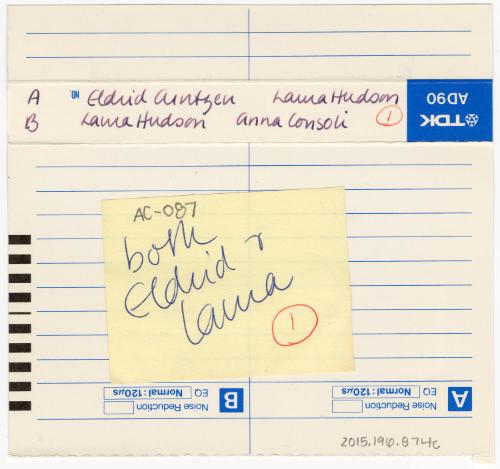 A NO Eldrid Arntzen Laura Hudson
B Laura Hudson Anna Consoli 1
TDK
AD90
AC-087
both
Eldrid +
Laura
1
B Noise Reduction
EQ Normal:120μs
A Noise Reduction
EQ Normal:120μs
2015.196.874c